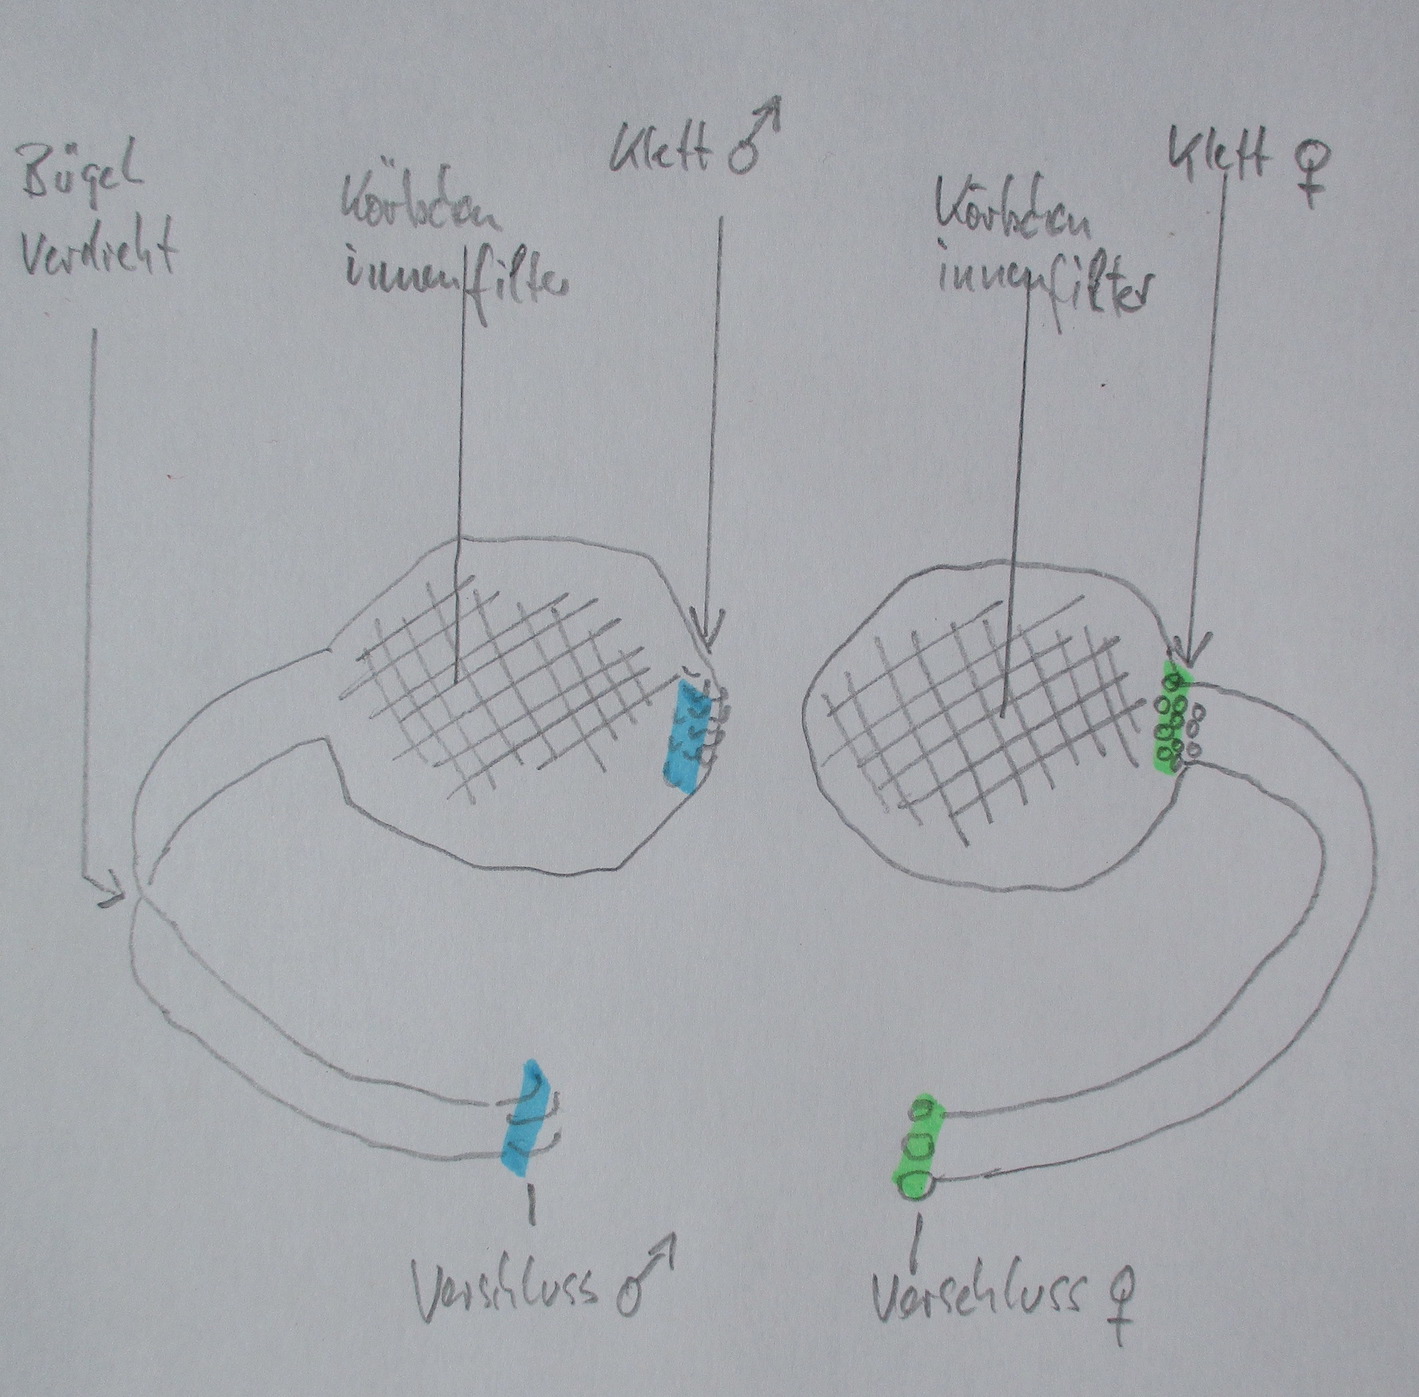 Bügel
verdreht
Körbchen
innenfilter
Klett ♂
Körbchen
innenfilter
Klett ♀
Verschluss ♂
Verschluss ♀